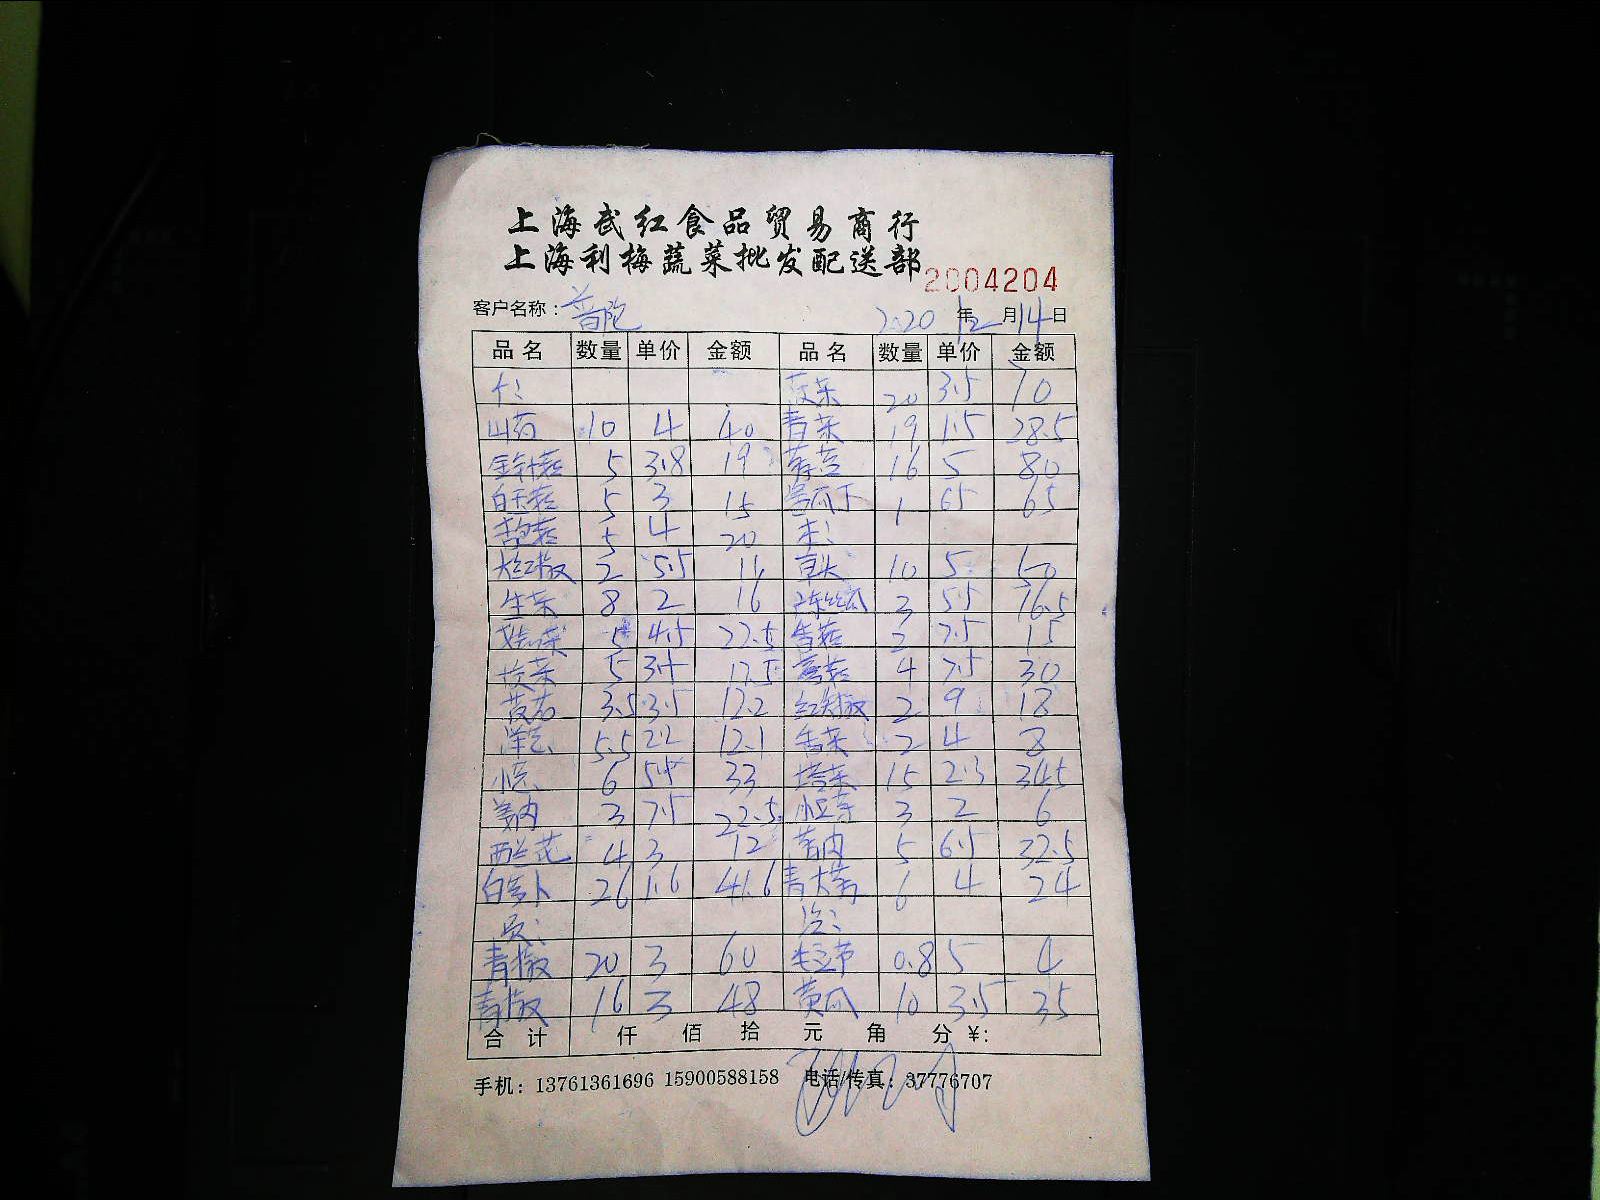 上海武红食品贸易商行
上海利梅蔬菜批发配送部
2004204
客户名称：普陀 2020年12月14日
品名 数量 单价 金额 品名 数量 单价 金额
20 3.5 70
山药 10 4 40 青菜 19 1.5 28.5
金针菇 5 3.8 19 莴苣 16 5 80
白玉菇 5 3 15 1 65 65
5 4 20 木：
大红椒 2 5.5 11 草头 10 5 50
生菜 8 2 16 3 5.5 16.5
娃娃菜 5 4.5 22.5 香菇 2 7.5 15
5 3.4 17.5 4 7.5 30
茭白 3.5 3.5 12.2 红尖椒 2 9 18
洋葱 5.5 2.2 12.1 香菜 2 4 8
小葱 6 5.5 33 塔菜 15 2.3 34.5
姜肉 3 7.5 22.5 3 2 6
西兰花 4 3 12 5 6.5 32.5
白萝卜 26 1.6 41.6 青大蒜 6 4 24
青椒 20 3 60 0.8 5 4
青椒 16 3 48 黄瓜 10 3.5 35
合计 仟 佰 拾 元 角 分 ¥：
手机：13761361696 15900588158 电话/传真：37776707